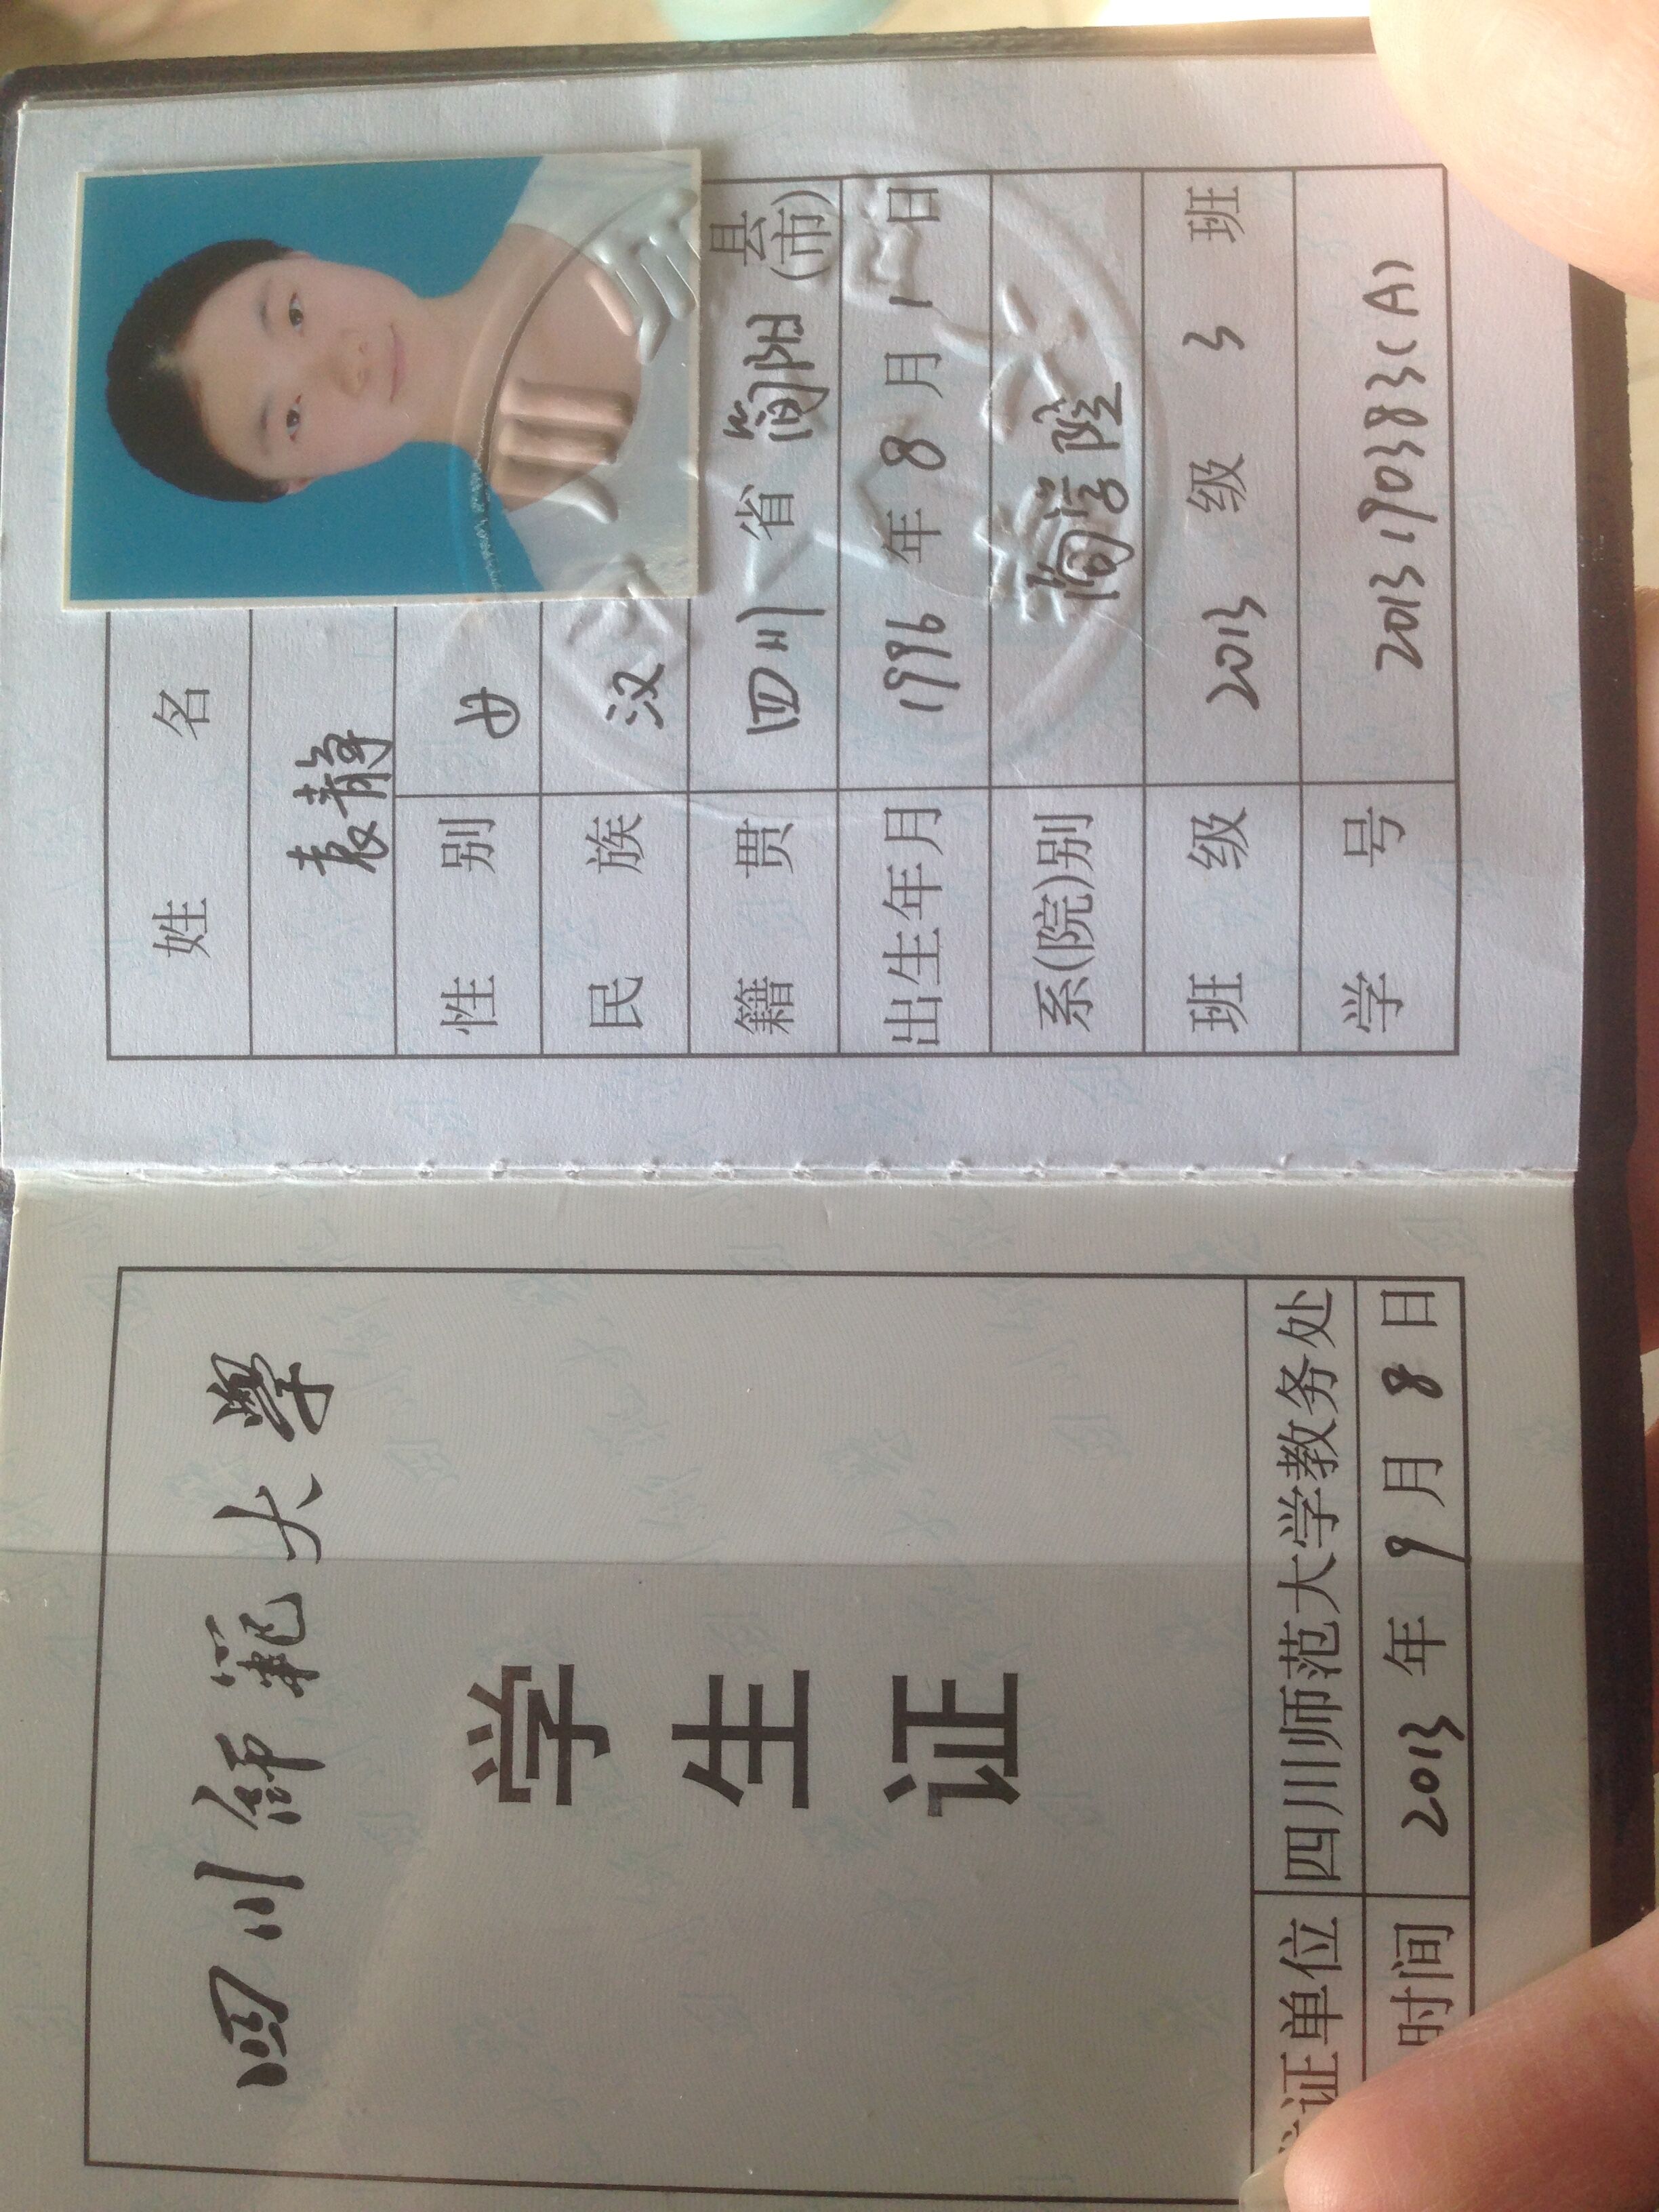 四川師範大學
学生证
发证单位 四川师范大学教务处
时间 2013年9月8日
姓名
袁静
性别 女
民族 汉
籍贯 四川省简阳县(市)
出生年月 1996年8月1日
系(院)别 商学院
班级 2013级3班
学号 2013190383(A)